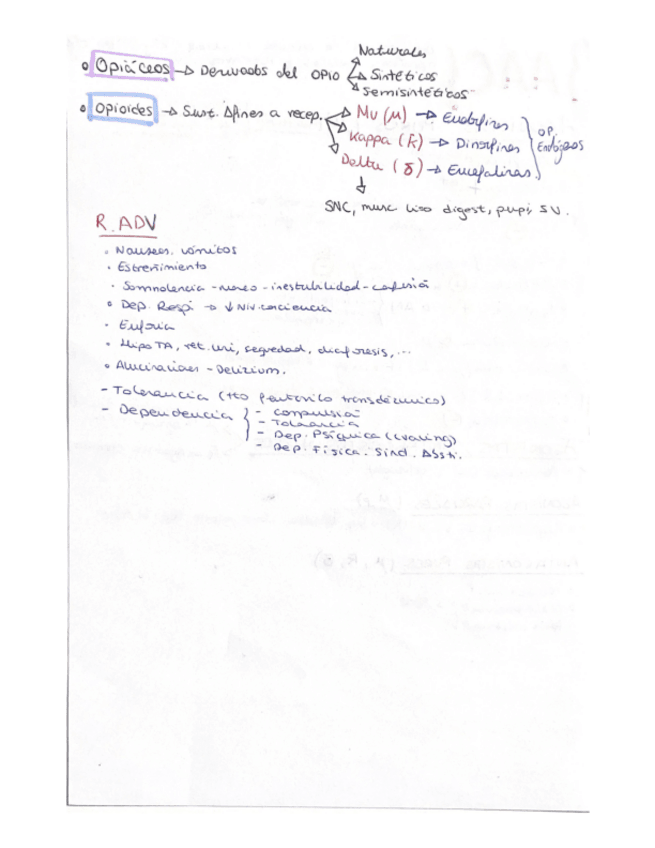 Naturales
Opiáceos → Derivados del OPIO
Sintéticos
Semisintéticos
Opioides → Sust. Afines a recep.
Mu (μ) → Endorfinas
Kappa (k) → Dinorfinas
Delta (δ) → Encefalinas
OP. Endógenos
SNC, musc liso digest, pupi, SU.
R. ADV
Nauseas, vómitos
Estreñimiento
Somnolencia - mareo - inestabilidad - confusión
Dep. Respi → ↓ Niv. conciencia
Euforia
Hipo TA, ret. uri, sequedad, diaforesis,...
Alucinaciones - Delirium.
- Tolerancia (tto fentanilo transdérmico)
- Dependencia
- Compulsión
- Tolerancia
- Dep. Psíquica (craving)
- Dep. Física. Sínd. Absti.